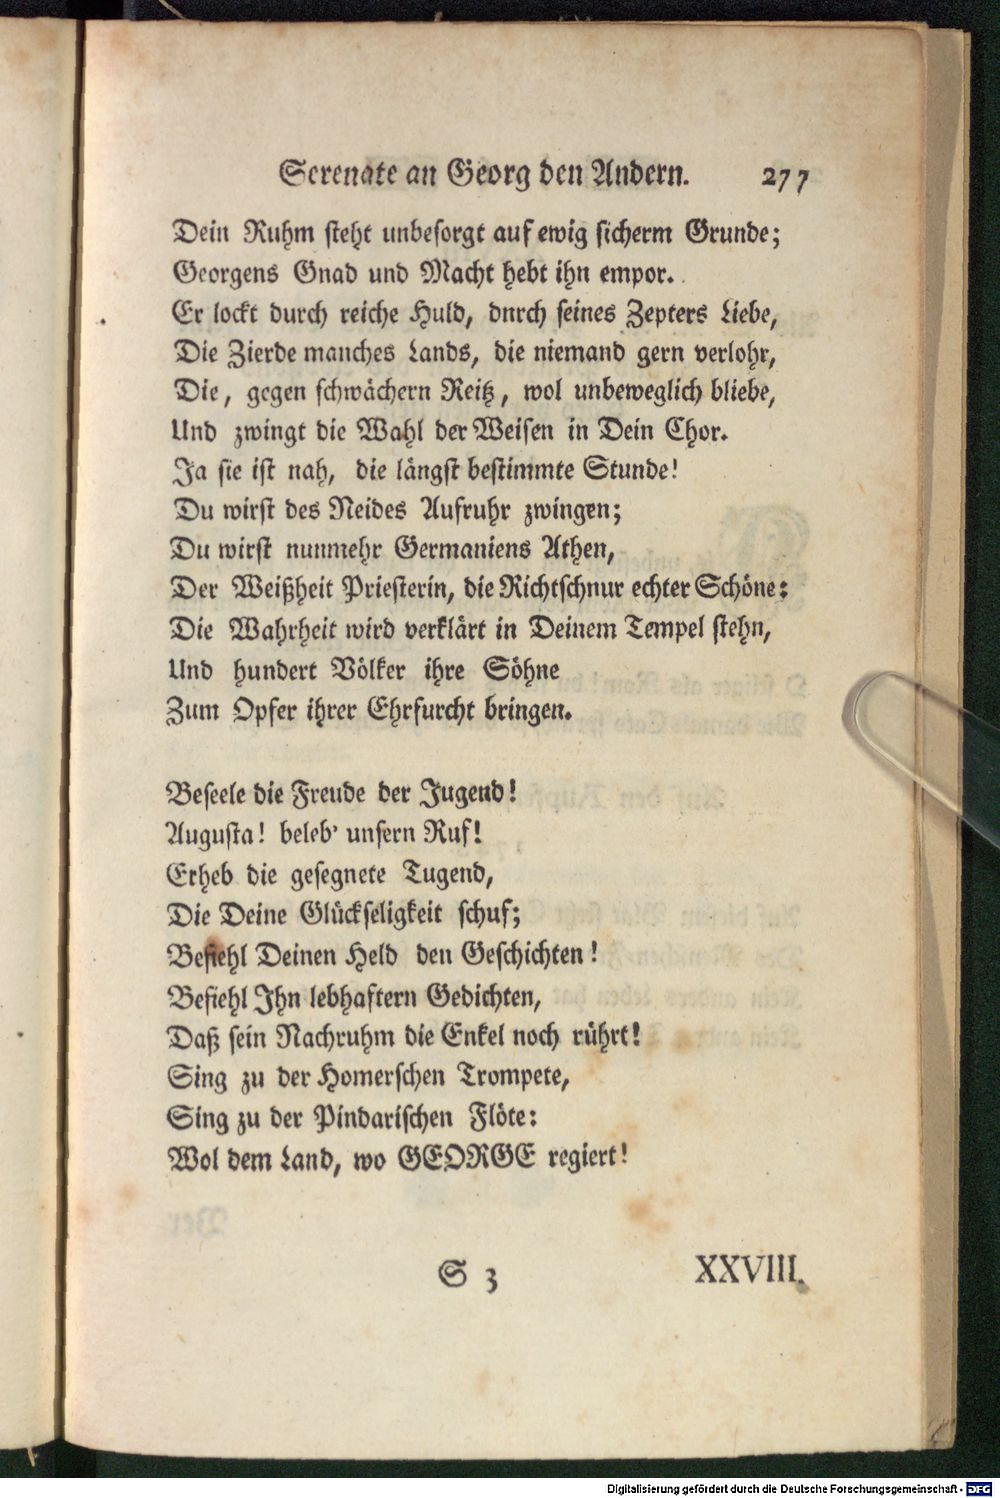 Serenate an Georg den Andern. 277
Dein Ruhm steht unbesorgt auf ewig sicherm Grunde;
Georgens Gnad und Macht hebt ihn empor.
Er lockt durch reiche Huld, dnrch seines Zepters Liebe,
Die Zierde manches Lands, die niemand gern verlohr,
Die, gegen schwächern Reitz, wol unbeweglich bliebe,
Und zwingt die Wahl der Weisen in Dein Chor.
Ja sie ist nah, die längst bestimmte Stunde!
Du wirst des Neides Aufruhr zwingen;
Du wirst nunmehr Germaniens Athen,
Der Weißheit Priesterin, die Richtschnur echter Schöne:
Die Wahrheit wird verklärt in Deinem Tempel stehn,
Und hundert Völker ihre Söhne
Zum Opfer ihrer Ehrfurcht bringen.
Beseele die Freude der Jugend!
Augusta! beleb' unsern Ruf!
Erheb die gesegnete Tugend,
Die Deine Glückseligkeit schuf;
Befiehl Deinen Held den Geschichten!
Befiehl Ihn lebhaftern Gedichten,
Daß sein Nachruhm die Enkel noch rührt!
Sing zu der Homerschen Trompete,
Sing zu der Pindarischen Flöte:
Wol dem Land, wo GEORGE regiert!
S 3 XXVIII.
Digitalisierung gefördert durch die Deutsche Forschungsgemeinschaft - DFG